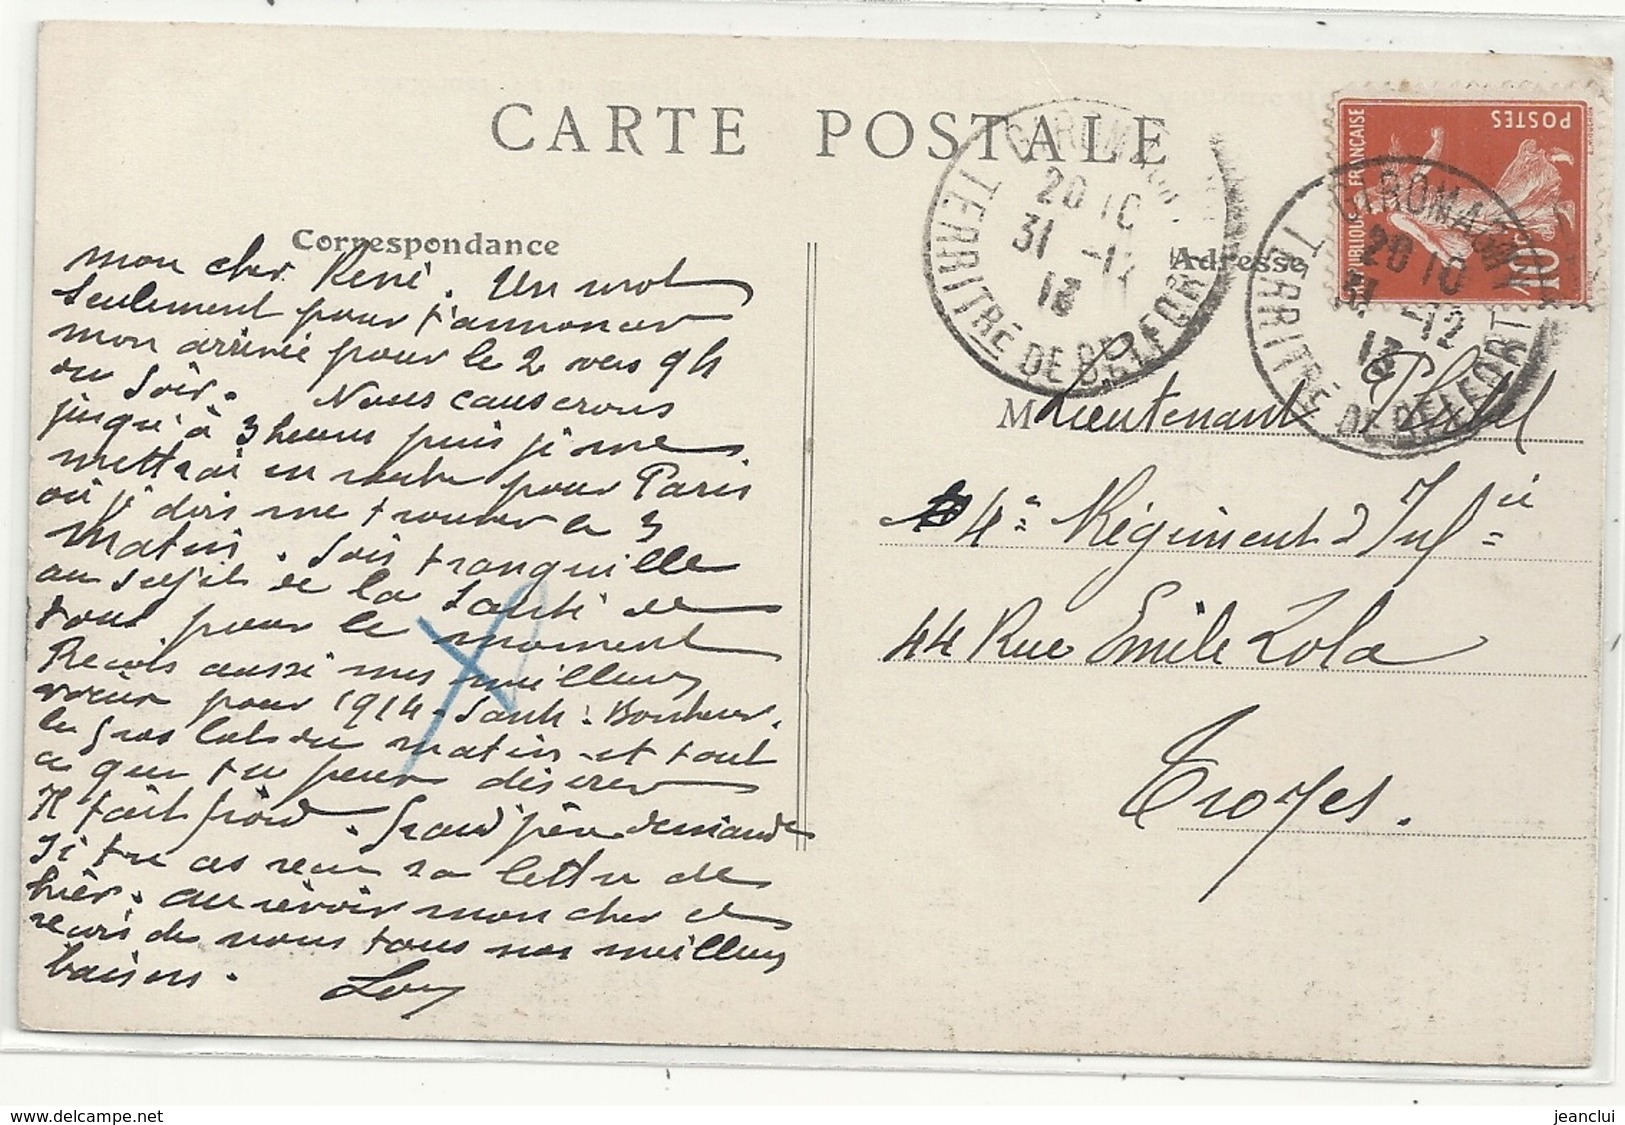 CARTE POSTALE
Correspondance
mon cher René. Un mot
seulement pour t'annoncer
mon arrivée pour le 2 vers 9h
du soir. Nous causerons
jusqu'à 3 heures puis je me
mettrai en route pour Paris
où je dois me trouver le 3
matin. Sois tranquille
au sujet de la santé de
tous pour le moment
Reçois aussi mes meilleurs
vœux pour 1914. Santé. Bonheur.
le gros lot du matin et tout
ce que tu peux désirer
Il fait froid. Grand père demande
si tu as reçu sa lettre de
hier. au revoir mon cher et
reçois de nous tous nos meilleurs
baisers.
GIROMAGNY
20 10
31 -12
13
TERRITRE DE BELFORT
Adresse
GIROMAGNY
20 10
31 -12
13
TERRITRE DE BELFORT
REPUBLIQUE FRANÇAISE
POSTES
10c
M Lieutenant
4e Régiment d'Infie
44 Rue Emile Zola
Troyes.
www.delcampe.net
jeanclui